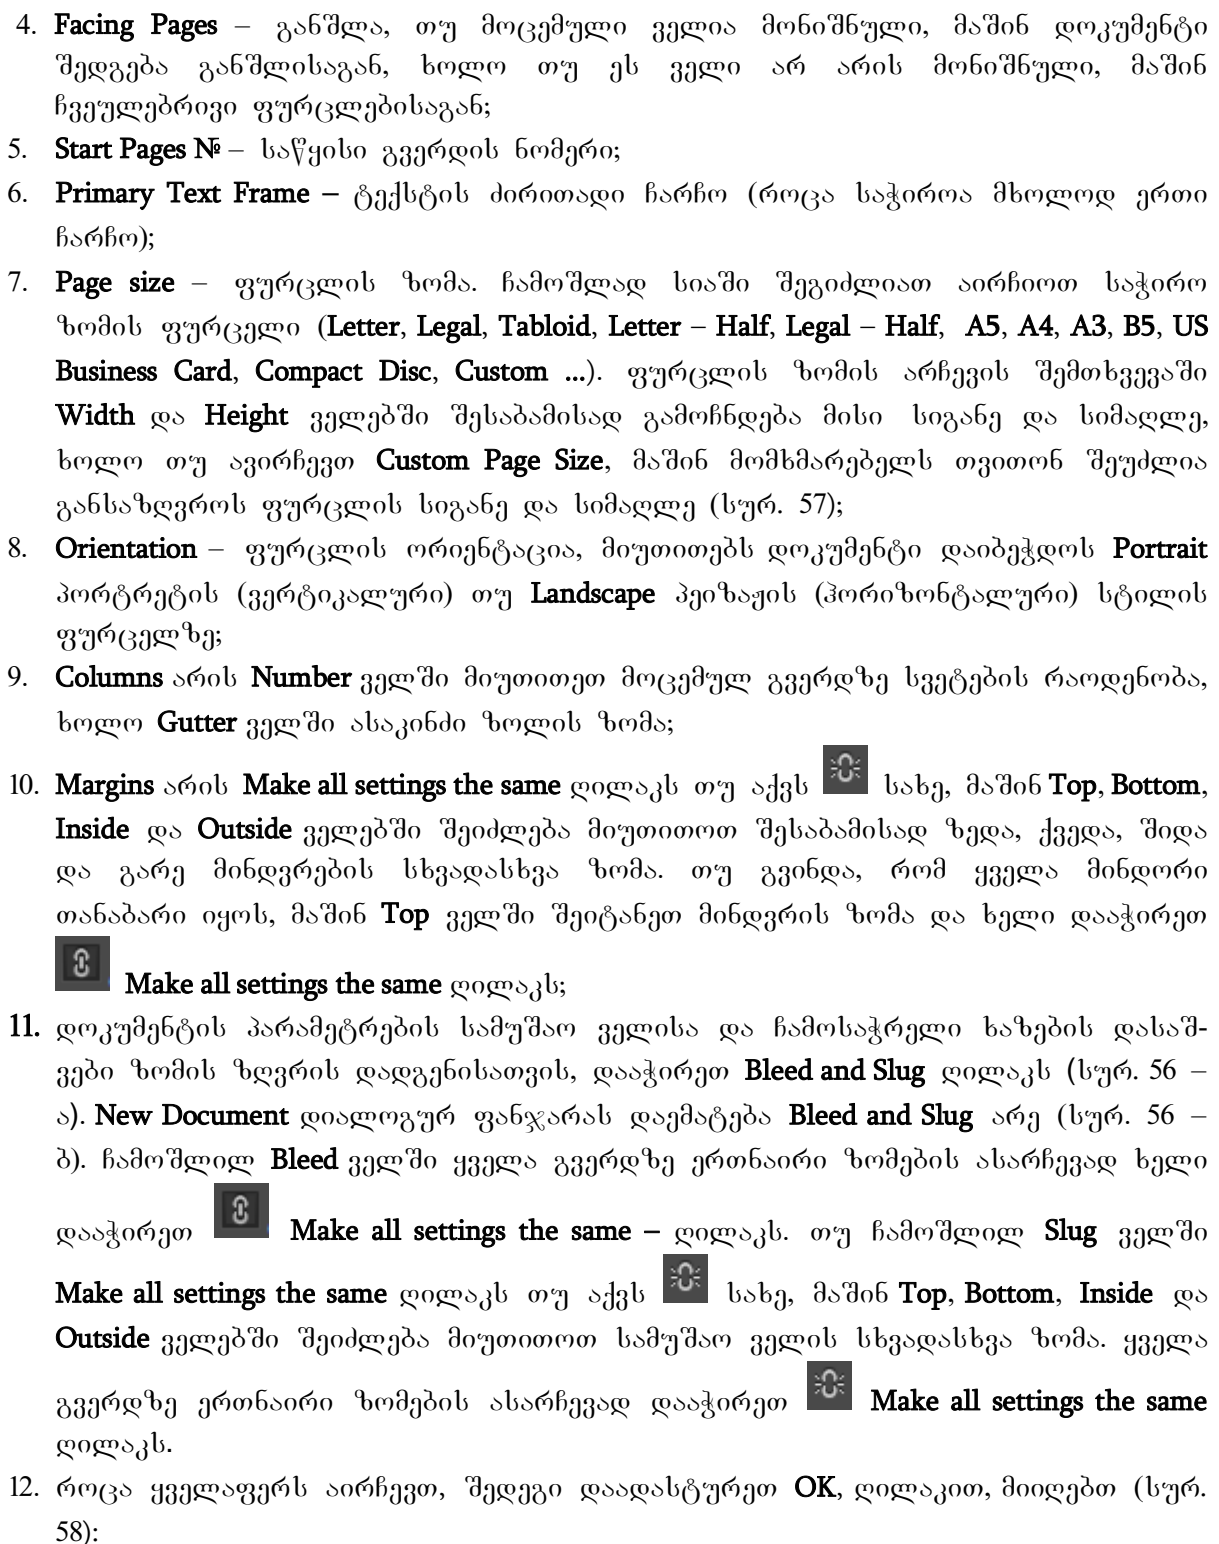 4. Facing Pages – განშლა, თუ მოცემული ველია მონიშნული, მაშინ დოკუმენტი
შედგება განშლისაგან, ხოლო თუ ეს ველი არ არის მონიშნული, მაშინ
ჩვეულებრივი ფურცლებისაგან;
5. Start Pages № – საწყისი გვერდის ნომერი;
6. Primary Text Frame – ტექსტის ძირითადი ჩარჩო (როცა საჭიროა მხოლოდ ერთი
ჩარჩო);
7. Page size – ფურცლის ზომა. ჩამოშლად სიაში შეგიძლიათ აირჩიოთ საჭირო
ზომის ფურცელი (Letter, Legal, Tabloid, Letter – Half, Legal – Half, A5, A4, A3, B5, US
Business Card, Compact Disc, Custom ...). ფურცლის ზომის არჩევის შემთხვევაში
Width და Height ველებში შესაბამისად გამოჩნდება მისი სიგანე და სიმაღლე,
ხოლო თუ ავირჩევთ Custom Page Size, მაშინ მომხმარებელს თვითონ შეუძლია
განსაზღვროს ფურცლის სიგანე და სიმაღლე (სურ. 57);
8. Orientation – ფურცლის ორიენტაცია, მიუთითებს დოკუმენტი დაიბეჭდოს Portrait
პორტრეტის (ვერტიკალური) თუ Landscape პეიზაჟის (ჰორიზონტალური) სტილის
ფურცელზე;
9. Columns არის Number ველში მიუთითეთ მოცემულ გვერდზე სვეტების რაოდენობა,
ხოლო Gutter ველში ასაკინძი ზოლის ზომა;
10. Margins არის Make all settings the same ღილაკს თუ აქვს სახე, მაშინ Top, Bottom,
Inside და Outside ველებში შეიძლება მიუთითოთ შესაბამისად ზედა, ქვედა, შიდა
და გარე მინდვრების სხვადასხვა ზომა. თუ გვინდა, რომ ყველა მინდორი
თანაბარი იყოს, მაშინ Top ველში შეიტანეთ მინდვრის ზომა და ხელი დააჭირეთ
Make all settings the same ღილაკს;
11. დოკუმენტის პარამეტრების სამუშაო ველისა და ჩამოსაჭრელი ხაზების დასაშ-
ვები ზომის ზღვრის დადგენისათვის, დააჭირეთ Bleed and Slug ღილაკს (სურ. 56 –
ა). New Document დიალოგურ ფანჯარას დაემატება Bleed and Slug არე (სურ. 56 –
ბ). ჩამოშლილ Bleed ველში ყველა გვერდზე ერთნაირი ზომების ასარჩევად ხელი
დააჭირეთ Make all settings the same – ღილაკს. თუ ჩამოშლილ Slug ველში
Make all settings the same ღილაკს თუ აქვს სახე, მაშინ Top, Bottom, Inside და
Outside ველებში შეიძლება მიუთითოთ სამუშაო ველის სხვადასხვა ზომა. ყველა
გვერდზე ერთნაირი ზომების ასარჩევად დააჭირეთ Make all settings the same
ღილაკს.
12. როცა ყველაფერს აირჩევთ, შედეგი დაადასტურეთ OK, ღილაკით, მიიღებთ (სურ.
58):